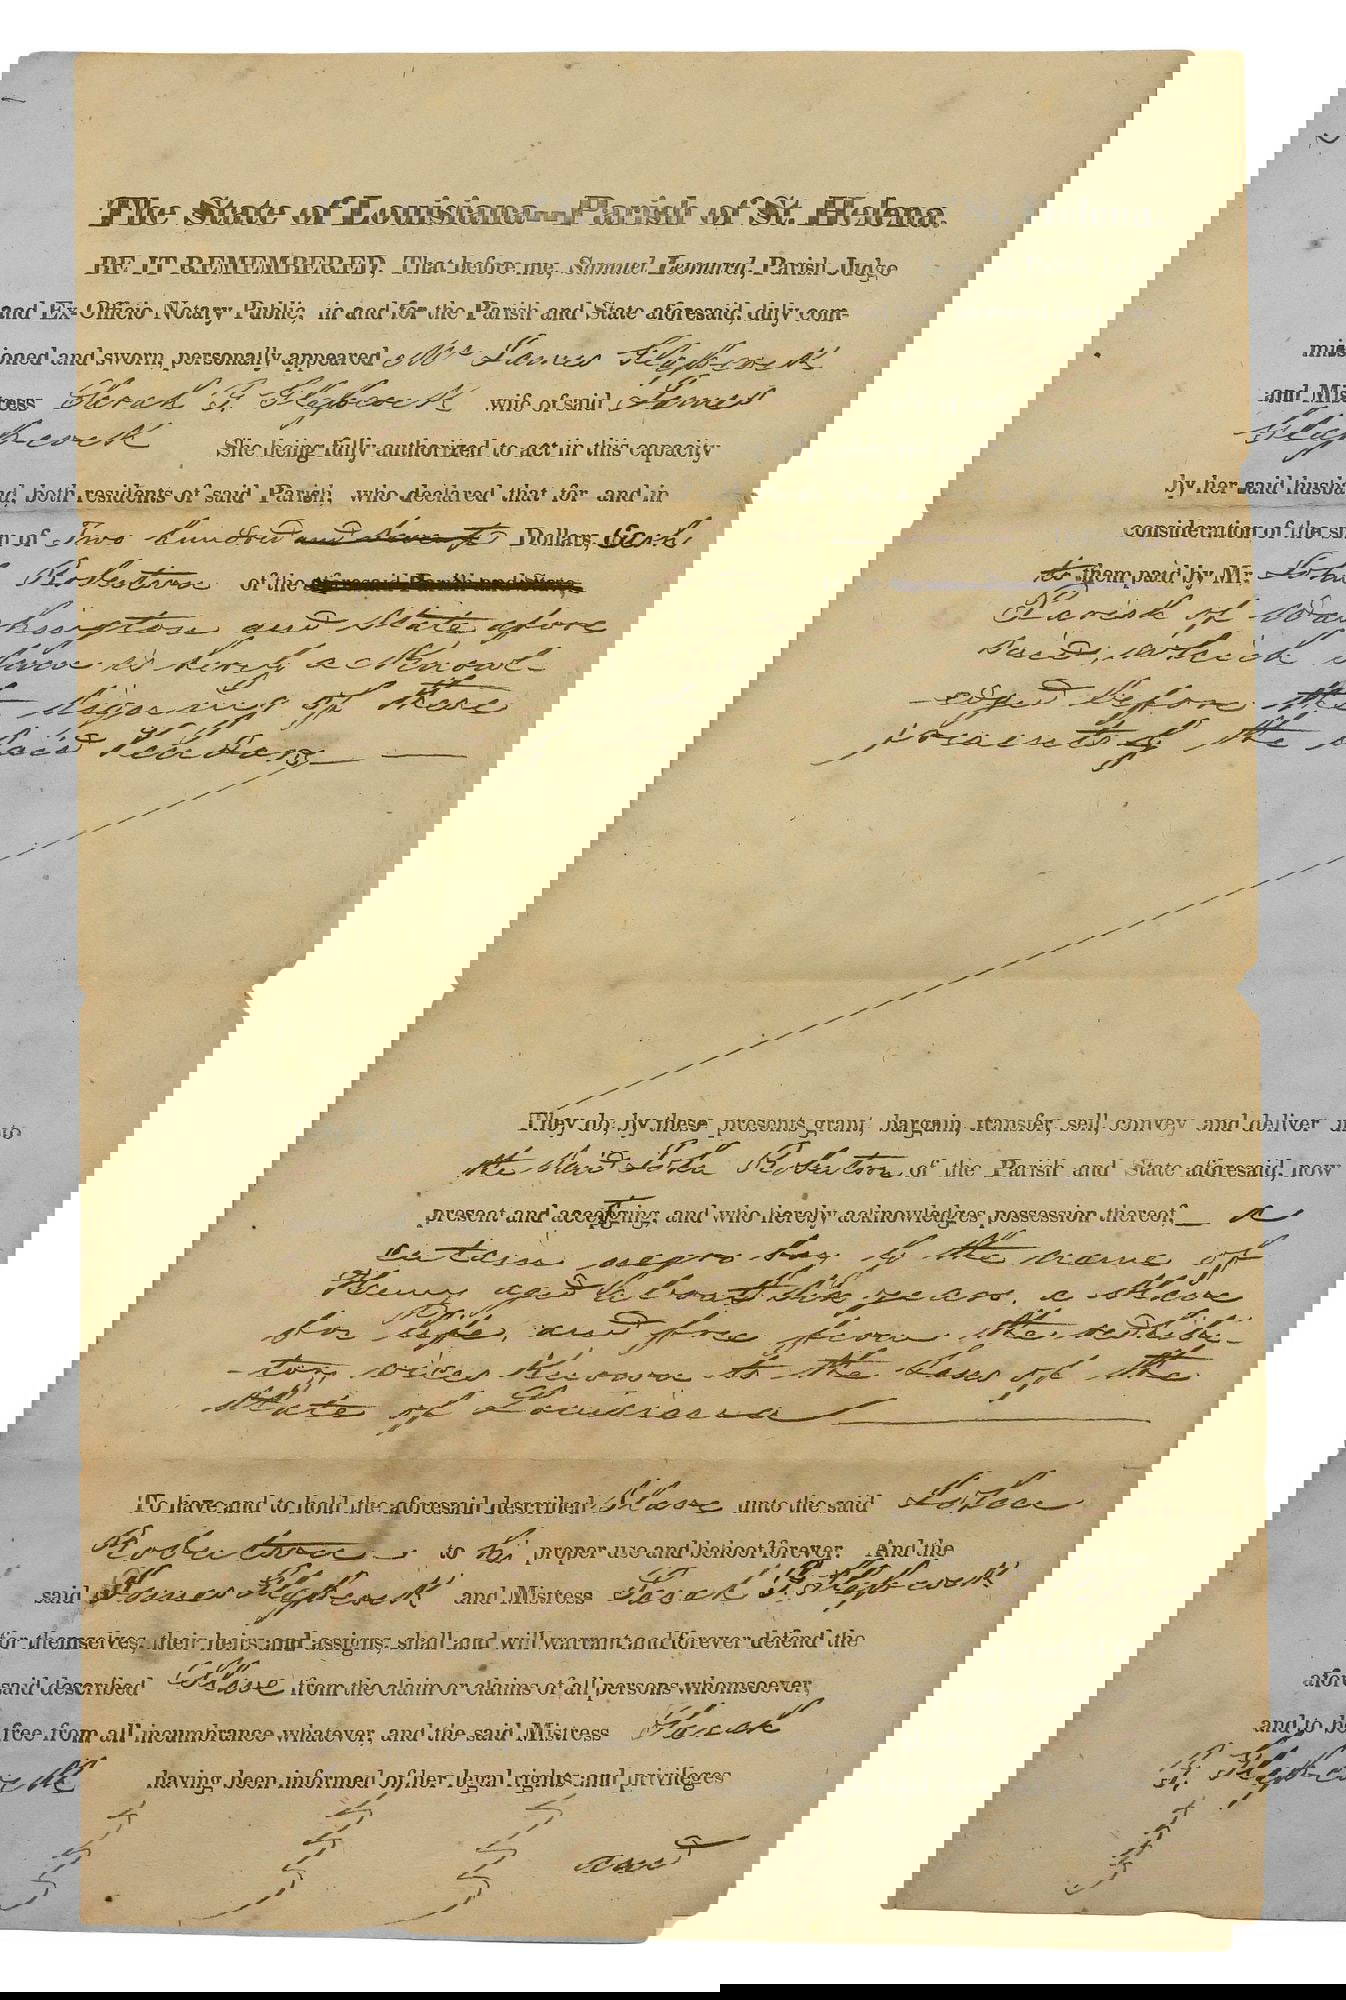 The State of Louisiana--Parish of St. Helena.
BE IT REMEMBERED, That before me, Samuel Leonard, Parish Judge
and Ex-Officio Notary Public, in and for the Parish and State aforesaid, duly com-
missioned and sworn, personally appeared Mr James
and Mistress Sarah wife of said James
She being fully authorized to act in this capacity
by her said husband, both residents of said Parish, who declared that for and in
consideration of the sum of Two hundred and seventy Dollars, Cash
to them paid by Mr. John Robertson of the aforesaid Parish and State,
Parish of Washington and State afore
said, which is hereby acknowl-
-edged before the signing of these
presents by the said
They do, by these presents grant, bargain, transfer, sell, convey and deliver unto
the said John Robertson of the Parish and State aforesaid, now
present and accepting, and who hereby acknowledges possession thereof, a
certain negro boy by the name of
Henry aged about six years, a slave
for life, and free from the redhibi-
-tory vices known to the laws of the
State of Louisiana
To have and to hold the aforesaid described Slave unto the said John
Robertson to his proper use and behoof forever. And the
said James and Mistress Sarah
for themselves, their heirs and assigns, shall and will warrant and forever defend the
aforesaid described Slave from the claim or claims of all persons whomsoever,
and to be free from all incumbrance whatever, and the said Mistress Sarah
having been informed of her legal rights and privileges
and